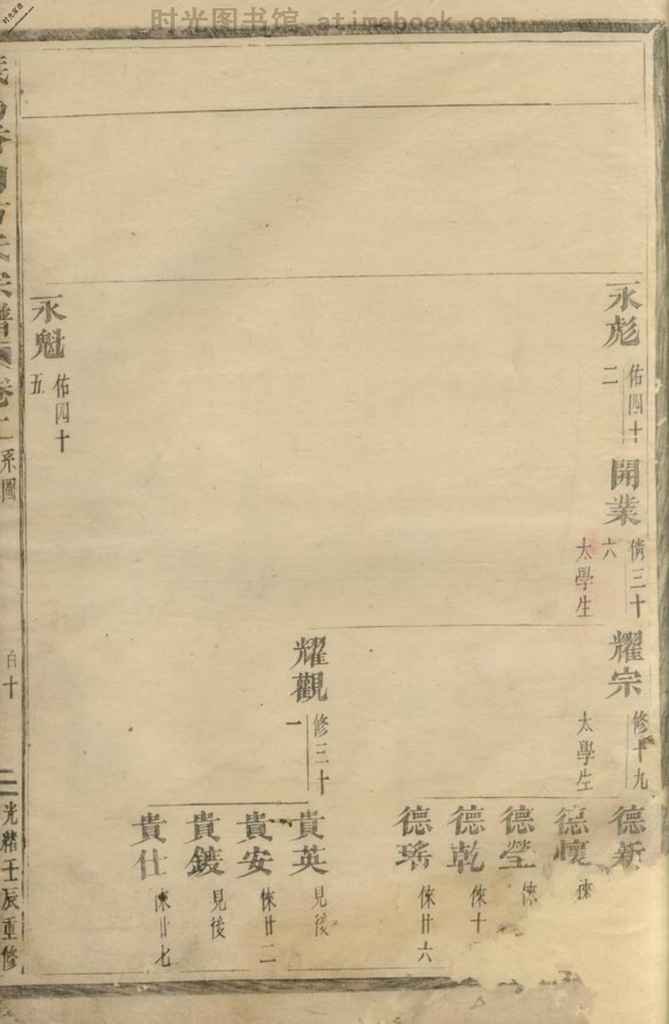 时光图书馆 atimebook.com
永彪
佑四十
二
開業
倩三十
六
太學生
耀宗
修十九
太學生
德新
德懷
德瑩
德乾
倈十
德瑤
倈廿六
耀觀
修三十
一
貴英
見後
貴安
倈廿二
貴鍍
見後
貴仕
倈廿七
永魁
佑四十
五
宗譜
卷二
系圖
百十
二
光緒壬辰重修